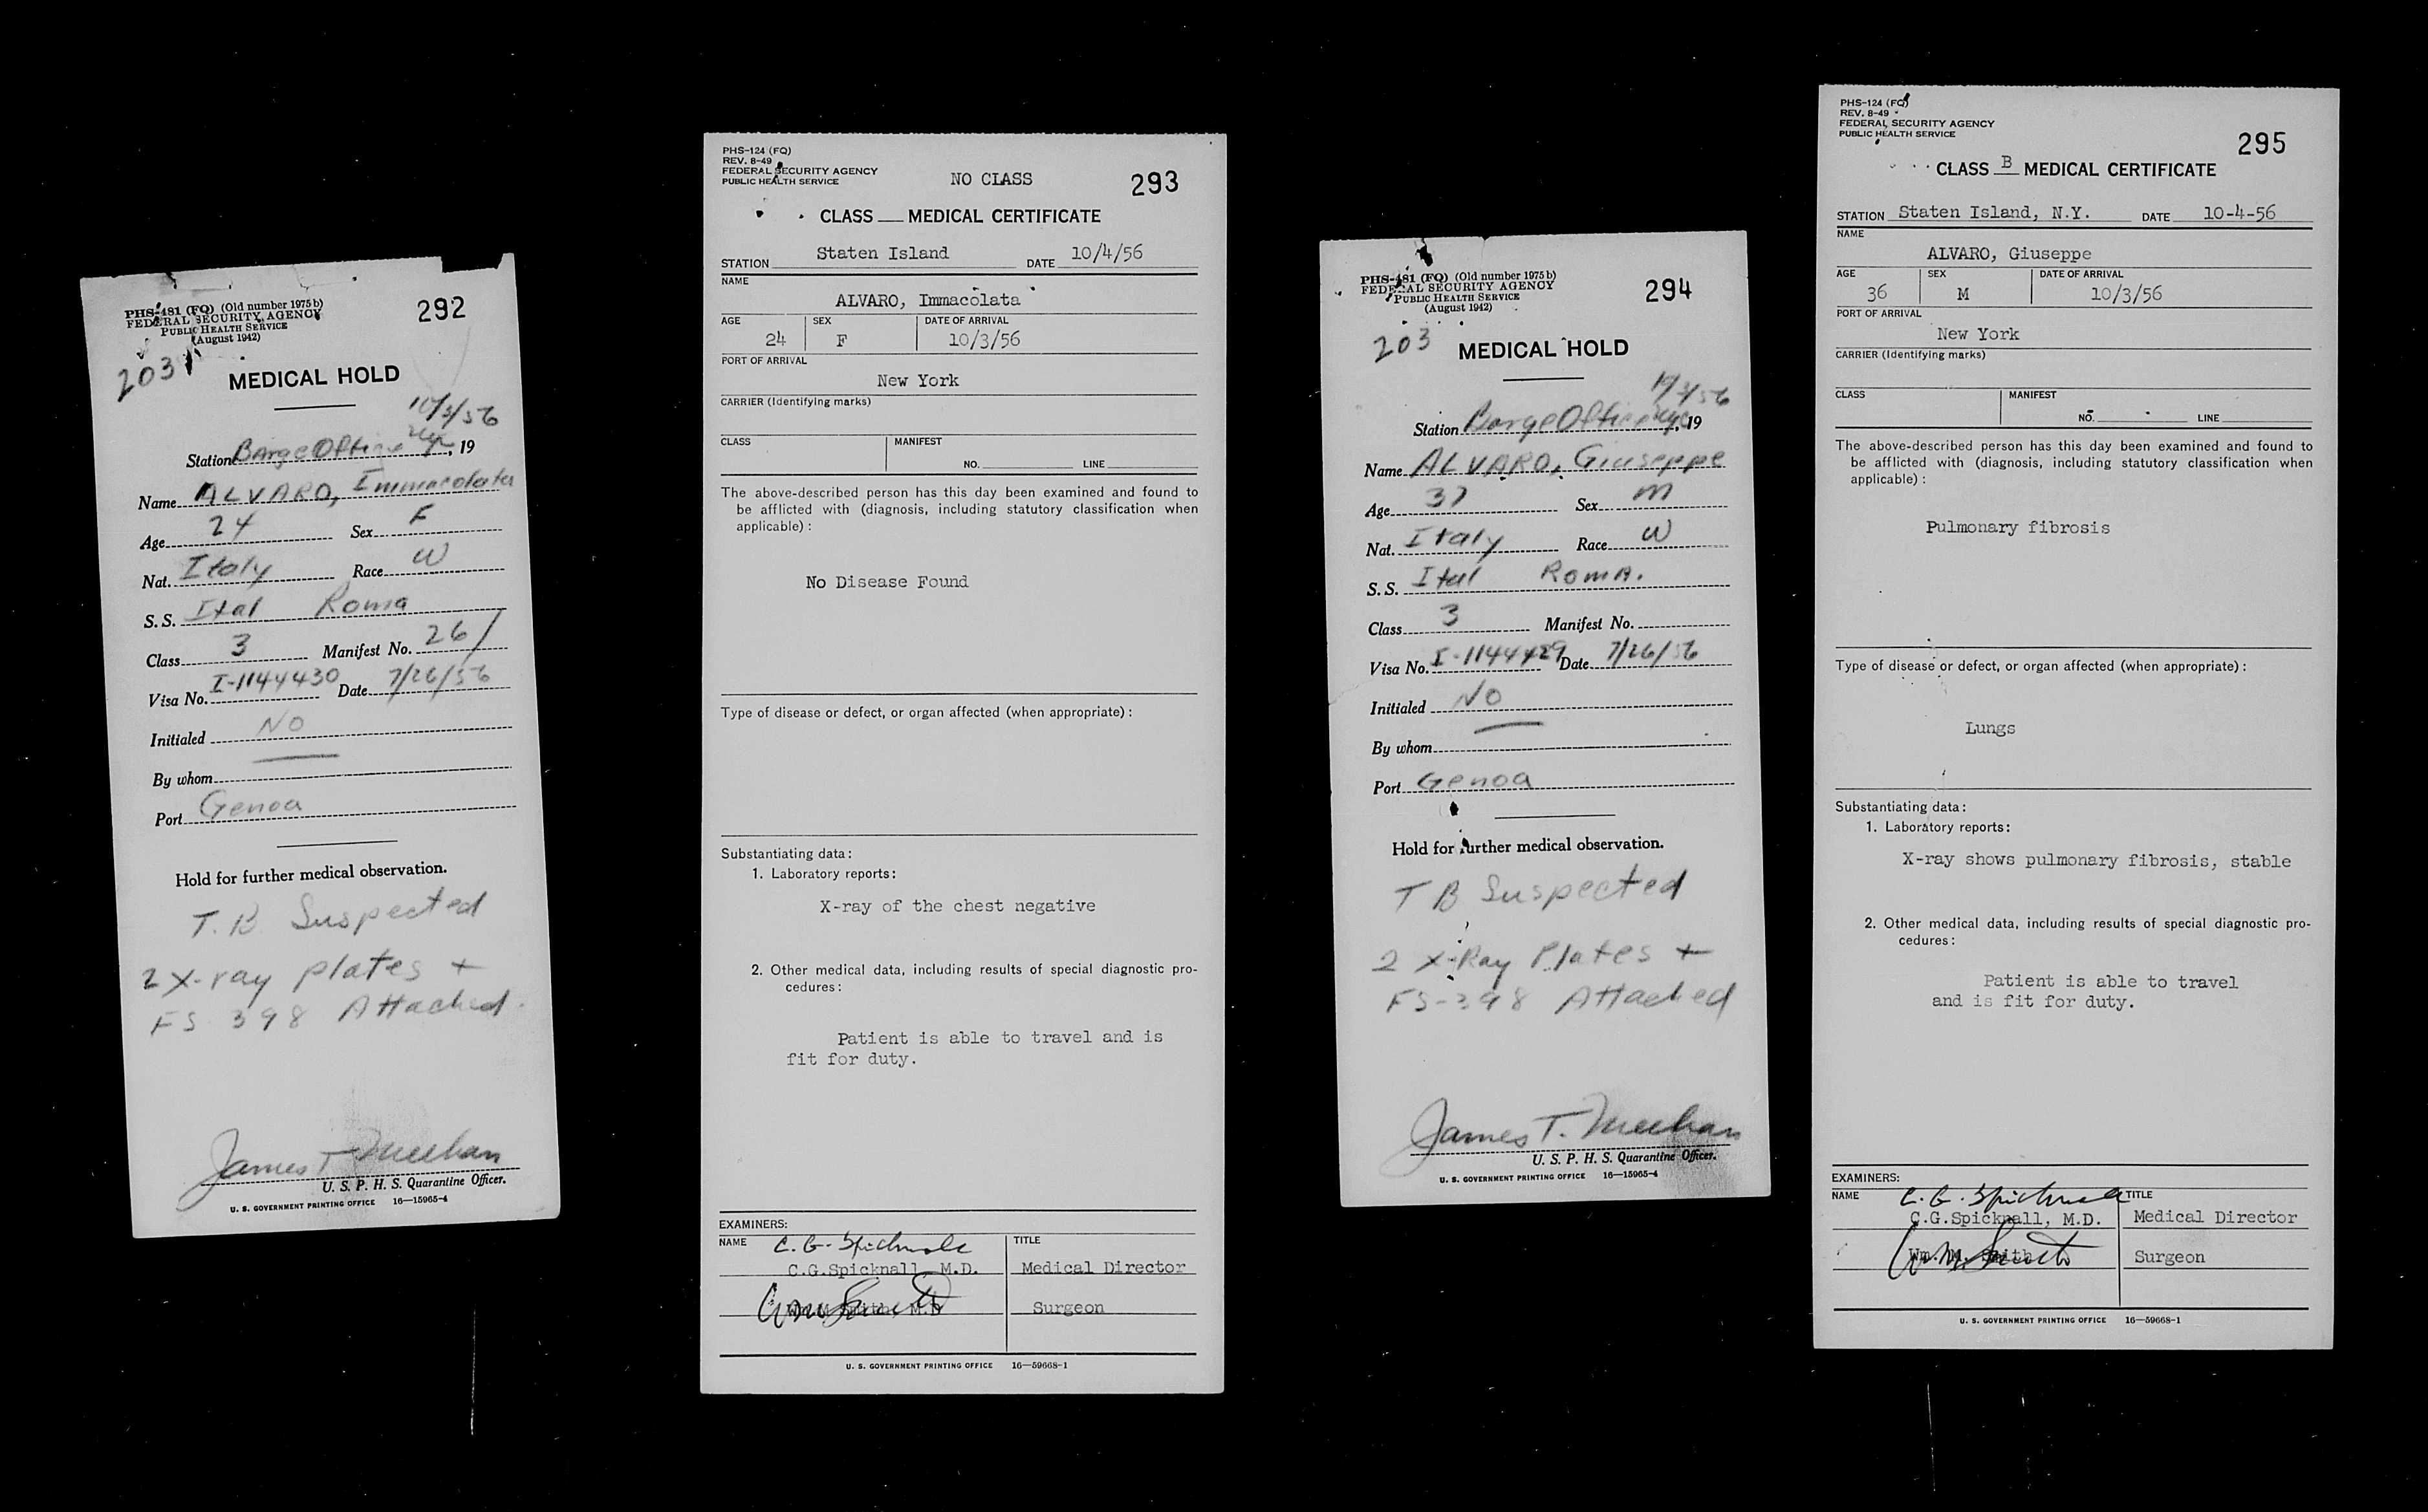 PHS-481 (FQ) (Old number 1975b)
FEDERAL SECURITY AGENCY
PUBLIC HEALTH SERVICE
(August 1942)
292
203
MEDICAL HOLD
10/3/56
Station Barge Office NYC, 19
Name ALVARO, Immacolata
Age 24 Sex F
Nat. Italy Race W
S.S. Ital Roma
Class 3 Manifest No. 26/
Visa No. I-1144430 Date 7/26/56
Initialed NO
By whom
Port Genoa
Hold for further medical observation.
T.B. Suspected
2 X-ray plates +
FS 398 Attached.
James T Meehan
U. S. P. H. S. Quarantine Officer.
U. S. GOVERNMENT PRINTING OFFICE 16—15965-4
PHS-124 (FQ)
REV. 8-49
FEDERAL SECURITY AGENCY
PUBLIC HEALTH SERVICE
NO CLASS
293
CLASS MEDICAL CERTIFICATE
STATION Staten Island DATE 10/4/56
NAME
ALVARO, Immacolata
AGE SEX DATE OF ARRIVAL
24 F 10/3/56
PORT OF ARRIVAL
New York
CARRIER (Identifying marks)
CLASS MANIFEST
NO. LINE
The above-described person has this day been examined and found to
be afflicted with (diagnosis, including statutory classification when
applicable):
No Disease Found
Type of disease or defect, or organ affected (when appropriate):
Substantiating data:
1. Laboratory reports:
X-ray of the chest negative
2. Other medical data, including results of special diagnostic pro-
cedures:
Patient is able to travel and is
fit for duty.
EXAMINERS:
NAME C. G. Spicknall TITLE
C.G.Spicknall, M.D. Medical Director
Wm. M. Smith, M.D Surgeon
U. S. GOVERNMENT PRINTING OFFICE 16—59668-1
PHS-481 (FQ) (Old number 1975b)
FEDERAL SECURITY AGENCY
PUBLIC HEALTH SERVICE
(August 1942)
294
203
MEDICAL HOLD
10/3/56
Station Barge Office NYC, 19
Name ALVARO, Giuseppe
Age 37 Sex M
Nat. Italy Race W
S.S. Ital Roma.
Class 3 Manifest No.
Visa No. I-1144429 Date 7/26/56
Initialed NO
By whom
Port Genoa
Hold for further medical observation.
TB Suspected
2 X-Ray Plates +
FS-398 Attached
James T. Meehan
U. S. P. H. S. Quarantine Officer.
U. S. GOVERNMENT PRINTING OFFICE 16—15965-4
PHS-124 (FQ)
REV. 8-49
FEDERAL SECURITY AGENCY
PUBLIC HEALTH SERVICE
295
CLASS B MEDICAL CERTIFICATE
STATION Staten Island, N.Y. DATE 10-4-56
NAME
ALVARO, Giuseppe
AGE SEX DATE OF ARRIVAL
36 M 10/3/56
PORT OF ARRIVAL
New York
CARRIER (Identifying marks)
CLASS MANIFEST
NO. LINE
The above-described person has this day been examined and found to
be afflicted with (diagnosis, including statutory classification when
applicable):
Pulmonary fibrosis
Type of disease or defect, or organ affected (when appropriate):
Lungs
Substantiating data:
1. Laboratory reports:
X-ray shows pulmonary fibrosis, stable
2. Other medical data, including results of special diagnostic pro-
cedures:
Patient is able to travel
and is fit for duty.
EXAMINERS:
NAME C. G. Spicknall TITLE
C.G.Spicknall, M.D. Medical Director
Wm. M. Smith Surgeon
U. S. GOVERNMENT PRINTING OFFICE 16—59668-1